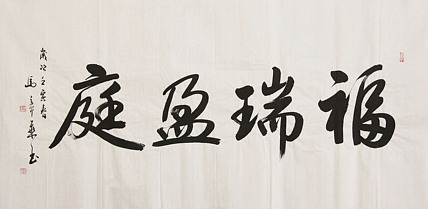 福瑞盈庭
歲次壬寅春
馬